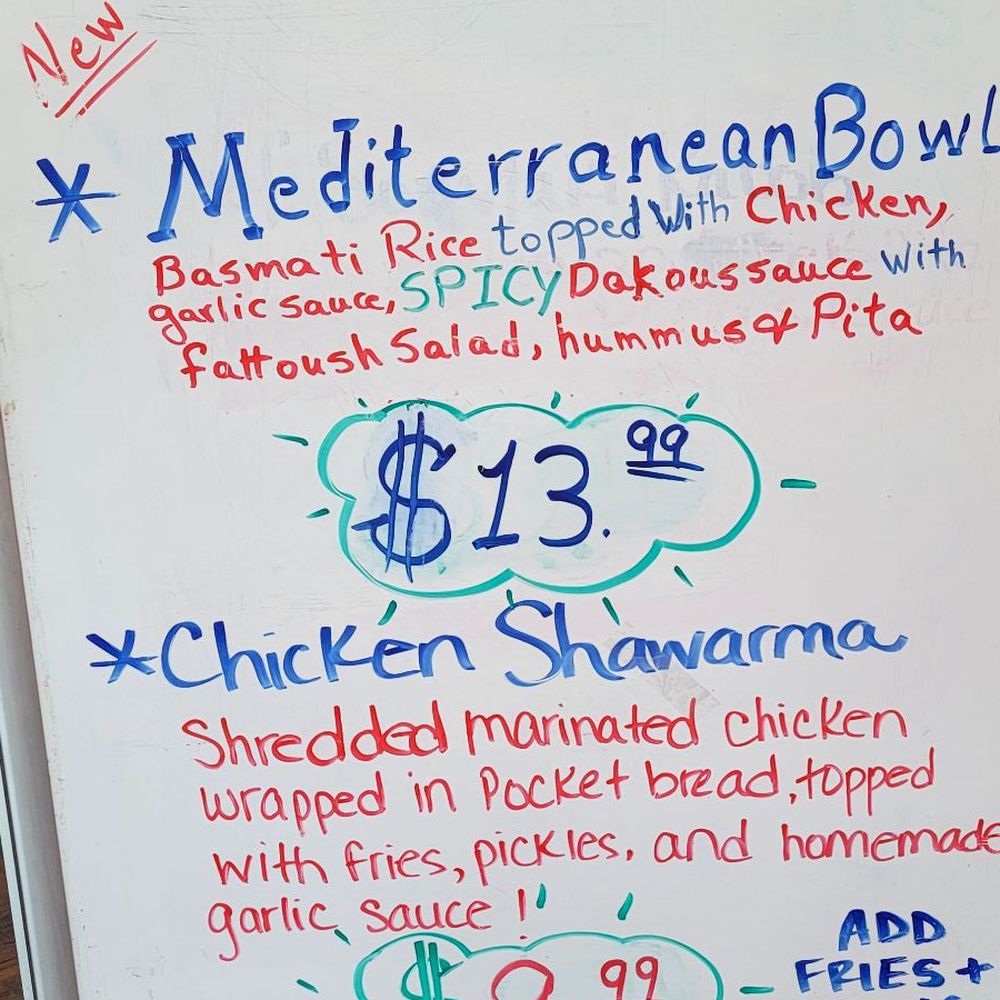 New
* Mediterranean Bowl
Basmati Rice topped with Chicken,
garlic sauce, SPICY Dakous sauce with
fattoush Salad, hummus & Pita
$13.99
*Chicken Shawarma
Shredded marinated chicken
wrapped in Pocket bread, topped
with fries, pickles, and homemade
garlic sauce !
ADD
$ 99
FRIES +